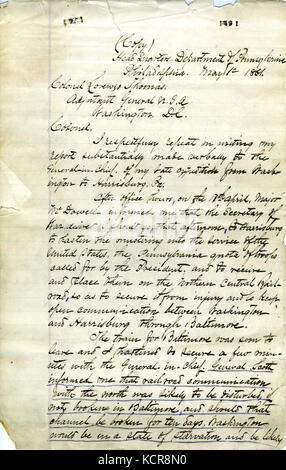 (Copy)
Head Quarters Department of Pennsylvania
Philadelphia. May 1st 1861.
Colonel Lorenzo Thomas.
Adjutant General U.S.A.
Washington D.C.
Colonel.
I respectfully repeat in writing my
report substantially made verbally to the
General-in-Chief, of my late expedition from Wash-
ington to Harrisburg, Pa.
After office hours, on the 18 April, Major
Mc Dowell informed me that the Secretary of
War desired that afternoon, to Harrisburg
to hasten the mustering into the service of the
United States, the Pennsylvania quota of troops
called for by the President, and to secure
and place them on the Northern Central Rail-
road, so as to secure it from injury and to keep
open communication between Washington
and Harrisburg through Baltimore.
The train for Baltimore was soon to
leave and I hastened to secure a few min-
utes with the General-in-Chief. General Scott
informed me that railroad communication
with the north was likely to be disturbed, if
not broken in Baltimore, and should that
channel be broken for ten days, Washington
would be in a State of starvation and be likely
alamy
CC8R8N0